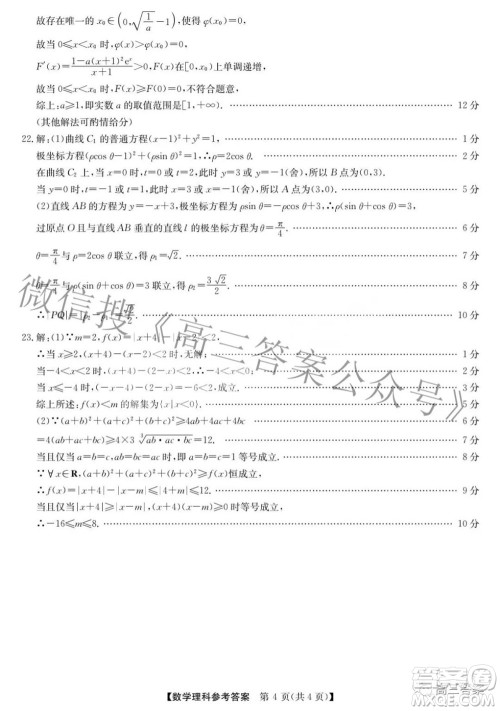 故存在唯一的 x₀∈(0,√(1/a)−1),使得 φ(x₀)=0,
故当 0≤x<x₀ 时,φ(x)>φ(x₀)=0,
F′(x)=(1−a(x+1)²eˣ)/(x+1)>0,F(x)在[0,x₀)上单调递增,
故当 0≤x<x₀ 时,F(x)≥F(0)=0,不符合题意,
综上:a≥1,即实数 a 的取值范围是[1,+∞). 12 分
(其他解法可酌情给分)
22.解:(1)曲线 C₁ 的普通方程(x−1)²+y²=1, 1 分
极坐标方程(ρcos θ−1)²+(ρsin θ)²=1,∴ρ=2cos θ. 2 分
在曲线 C₂ 上,当 x=0 时,t=0 或 t=1(舍),所以 A 点为(0,3). 3 分
当 y=0 时,t=3 或 t=1(舍),所以 B 点为(3,0). 5 分
(2)直线 AB 的方程为 y=−x+3,极坐标方程为 ρsin θ=−ρcos θ+3, 6 分
过原点 O 且与直线 AB 垂直的直线 l 的极坐标方程为 θ=π/4. 7 分
θ=π/4 与 ρ=2cos θ 联立,得 ρ₁=√2. 8 分
θ=π/4 与 ρ(sin θ+cos θ)=3 联立,得 ρ₂=3√2/2. 9 分
∴|PQ|=|ρ₂−ρ₁|=√2/2. 10 分
23.解:(1)∵m=2,f(x)=|x+4|−|x−2|<2,
∴当 x≥2,(x+4)−(x−2)<2 时,无解; 1 分
当−4<x<2 时,(x+4)−(2−x)<2,∴−4<x<0; 2 分
当 x≤−4 时,−(x+4)−(2−x)=−6<2, 3 分
综上所述:f(x)<2 的解集为 5 分
(2)∵(a+b)²+(a+c)²+(b+c)²≥4ab+4ac+4bc 6 分
=4(ab+ac+bc)≥4×3∛(ab·ac·bc)=12. 7 分
当且仅当 a=b 且 a=c 且 b=c,即 a=b=c=1 时,等号成立. 8 分
∵∀x∈R,(a+b)²+(a+c)²+(b+c)²≥f(x)恒成立,
∴f(x)=|x+4|−|x−m|≤|4+m|≤12. 9 分
当且仅当|x+4|≥|x−m|,(x+4)(x−m)≥0 时,等号成立,
∴−16≤m≤8. 10 分
微信搜《高三答案公众号》
【数学理科参考答案 第 4 页(共 4 页)】
高三答案